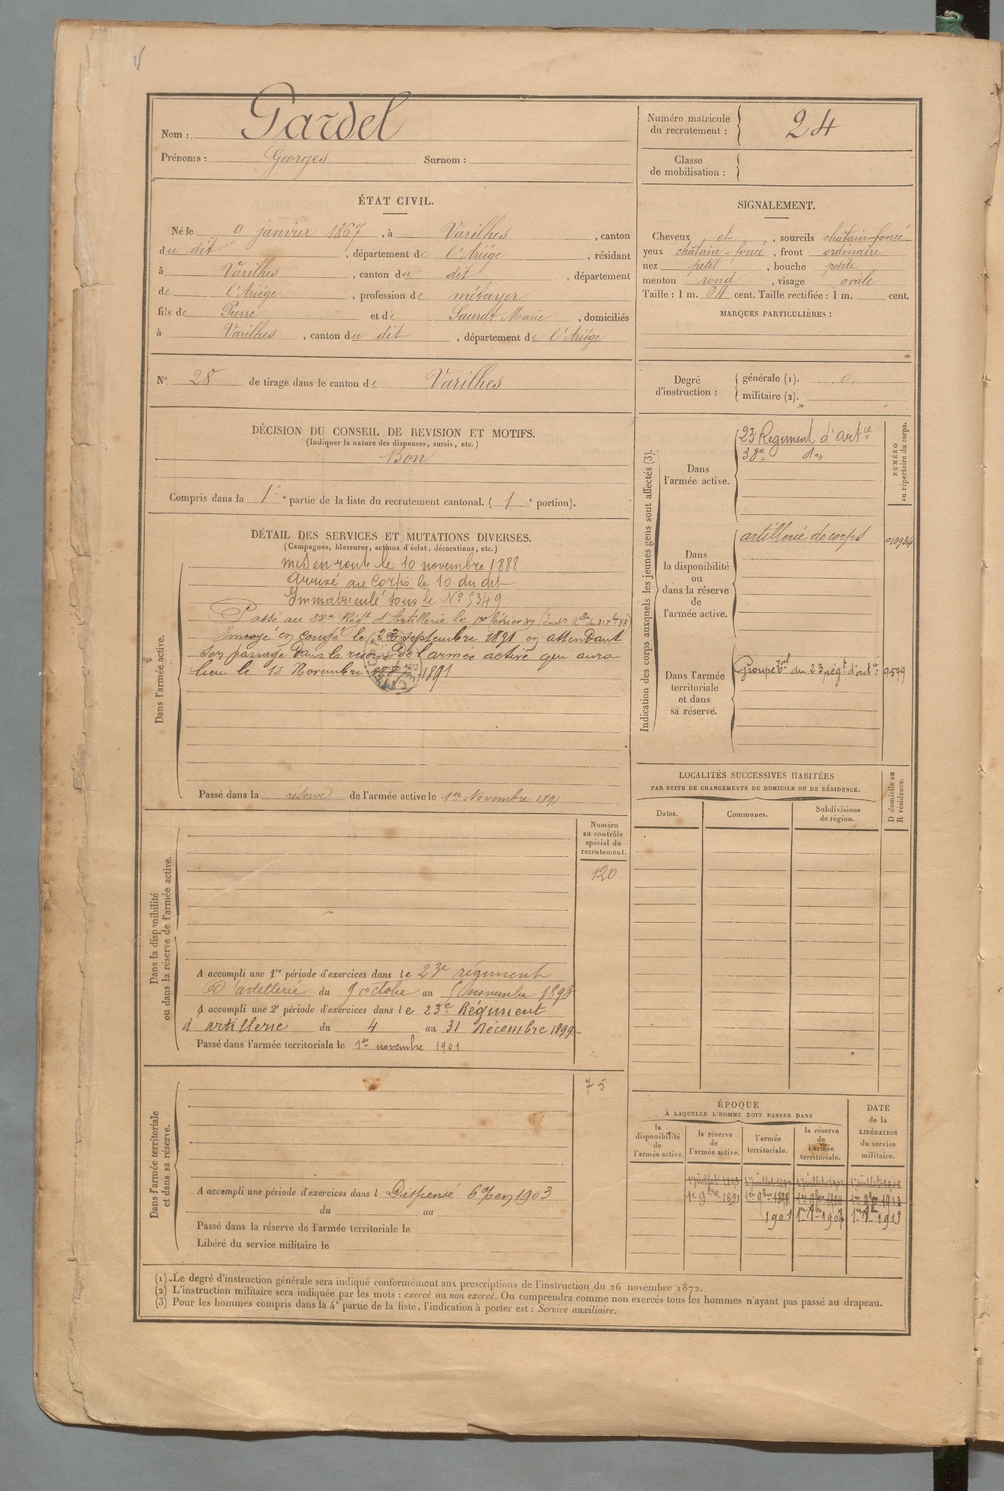 Nom : Gardel
Prénoms : Georges Surnom :
Numéro matricule du recrutement : 24
Classe de mobilisation :
ÉTAT CIVIL.
Né le 9 janvier 1867, à Varilhes, canton
du dit, département de l'Ariége, résidant
à Varilhes, canton du dit, département
de l'Ariége, profession de métayer
fils de Pierre et de Saurdt Marie, domiciliés
à Varilhes, canton du dit, département de l'Ariége
SIGNALEMENT.
Cheveux et, sourcils chatain-foncé
yeux chatain-foncé, front ordinaire
nez petit, bouche petite
menton rond, visage ovale
Taille : 1 m. 64 cent. Taille rectifiée : 1 m. cent.
MARQUES PARTICULIÈRES :
N° 28 de tirage dans le canton de Varilhes
Degré d'instruction : générale (1). 0
militaire (2).
DÉCISION DU CONSEIL DE REVISION ET MOTIFS.
(Indiquer la nature des dispenses, sursis, etc.)
Bon
Compris dans la 1e partie de la liste du recrutement cantonal. ( 1e portion).
DÉTAIL DES SERVICES ET MUTATIONS DIVERSES.
(Campagnes, blessures, actions d'éclat, décorations, etc.)
Dans l'armée active.
mis en route le 10 novembre 1888
Arrivé au Corps le 10 du dit
Immatriculé sous le N° 5349
Passé au 38e Régt d'Artillerie le 1er février 89
Envoyé en congé le 23 septembre 1891 en attendant
son passage dans la réserve de l'armée active qui aura
lieu le 1er Novembre 1891
Passé dans la réserve de l'armée active le 1er Novembre 1891
Indication des corps auxquels les jeunes gens sont affectés (3).
NUMÉRO au répertoire du corps.
Dans l'armée active.
23e Regiment d'artie
38e do
Dans la disponibilité ou dans la réserve de l'armée active.
artillerie de corps
Dans l'armée territoriale et dans sa réserve.
Groupe terrial du 23 régt d'artie 9579
LOCALITÉS SUCCESSIVES HABITÉES
PAR SUITE DE CHANGEMENTS DE DOMICILE OU DE RÉSIDENCE.
D domicile ou R résidence.
Dates. Communes. Subdivisions de région.
Dans la disponibilité ou dans la réserve de l'armée active.
Numéro au contrôle spécial du recrutement.
120
A accompli une 1re période d'exercices dans le 23e régiment
d'artillerie du 9 octobre au 5 novembre 1893
A accompli une 2e période d'exercices dans le 23e Régiment
d'artillerie du 4 au 31 Décembre 1899
Passé dans l'armée territoriale le 1er novembre 1901
Dans l'armée territoriale et dans sa réserve.
75
A accompli une période d'exercices dans l Dispensé 1903
du au
Passé dans la réserve de l'armée territoriale le
Libéré du service militaire le
ÉPOQUE
À LAQUELLE L'HOMME DOIT PASSER DANS
la disponibilité de l'armée active.
la réserve de l'armée active.
l'armée territoriale.
la réserve de l'armée territoriale.
DATE de la LIBÉRATION du service militaire.
1er 9bre 1891 1er 9bre 1898 1er 9bre 1913
1901 1er 9bre 1907 1er 9bre 1913
(1) Le degré d'instruction générale sera indiqué conformément aux prescriptions de l'instruction du 26 novembre 1872.
(2) L'instruction militaire sera indiquée par les mots : exercé ou non exercé. On comprendra comme non exercés tous les hommes n'ayant pas passé au drapeau.
(3) Pour les hommes compris dans la 4e partie de la liste, l'indication à porter est : Service auxiliaire.